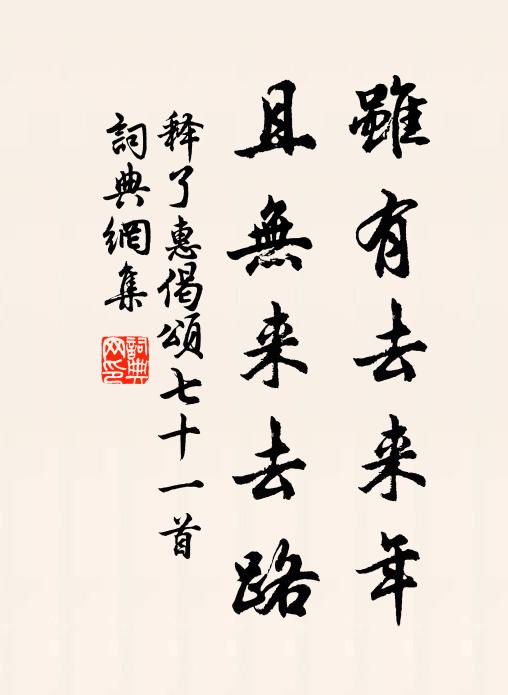 雖有去来年
且無来去路
释了惠偈頌七十一首
詞典網集
詞典
网印